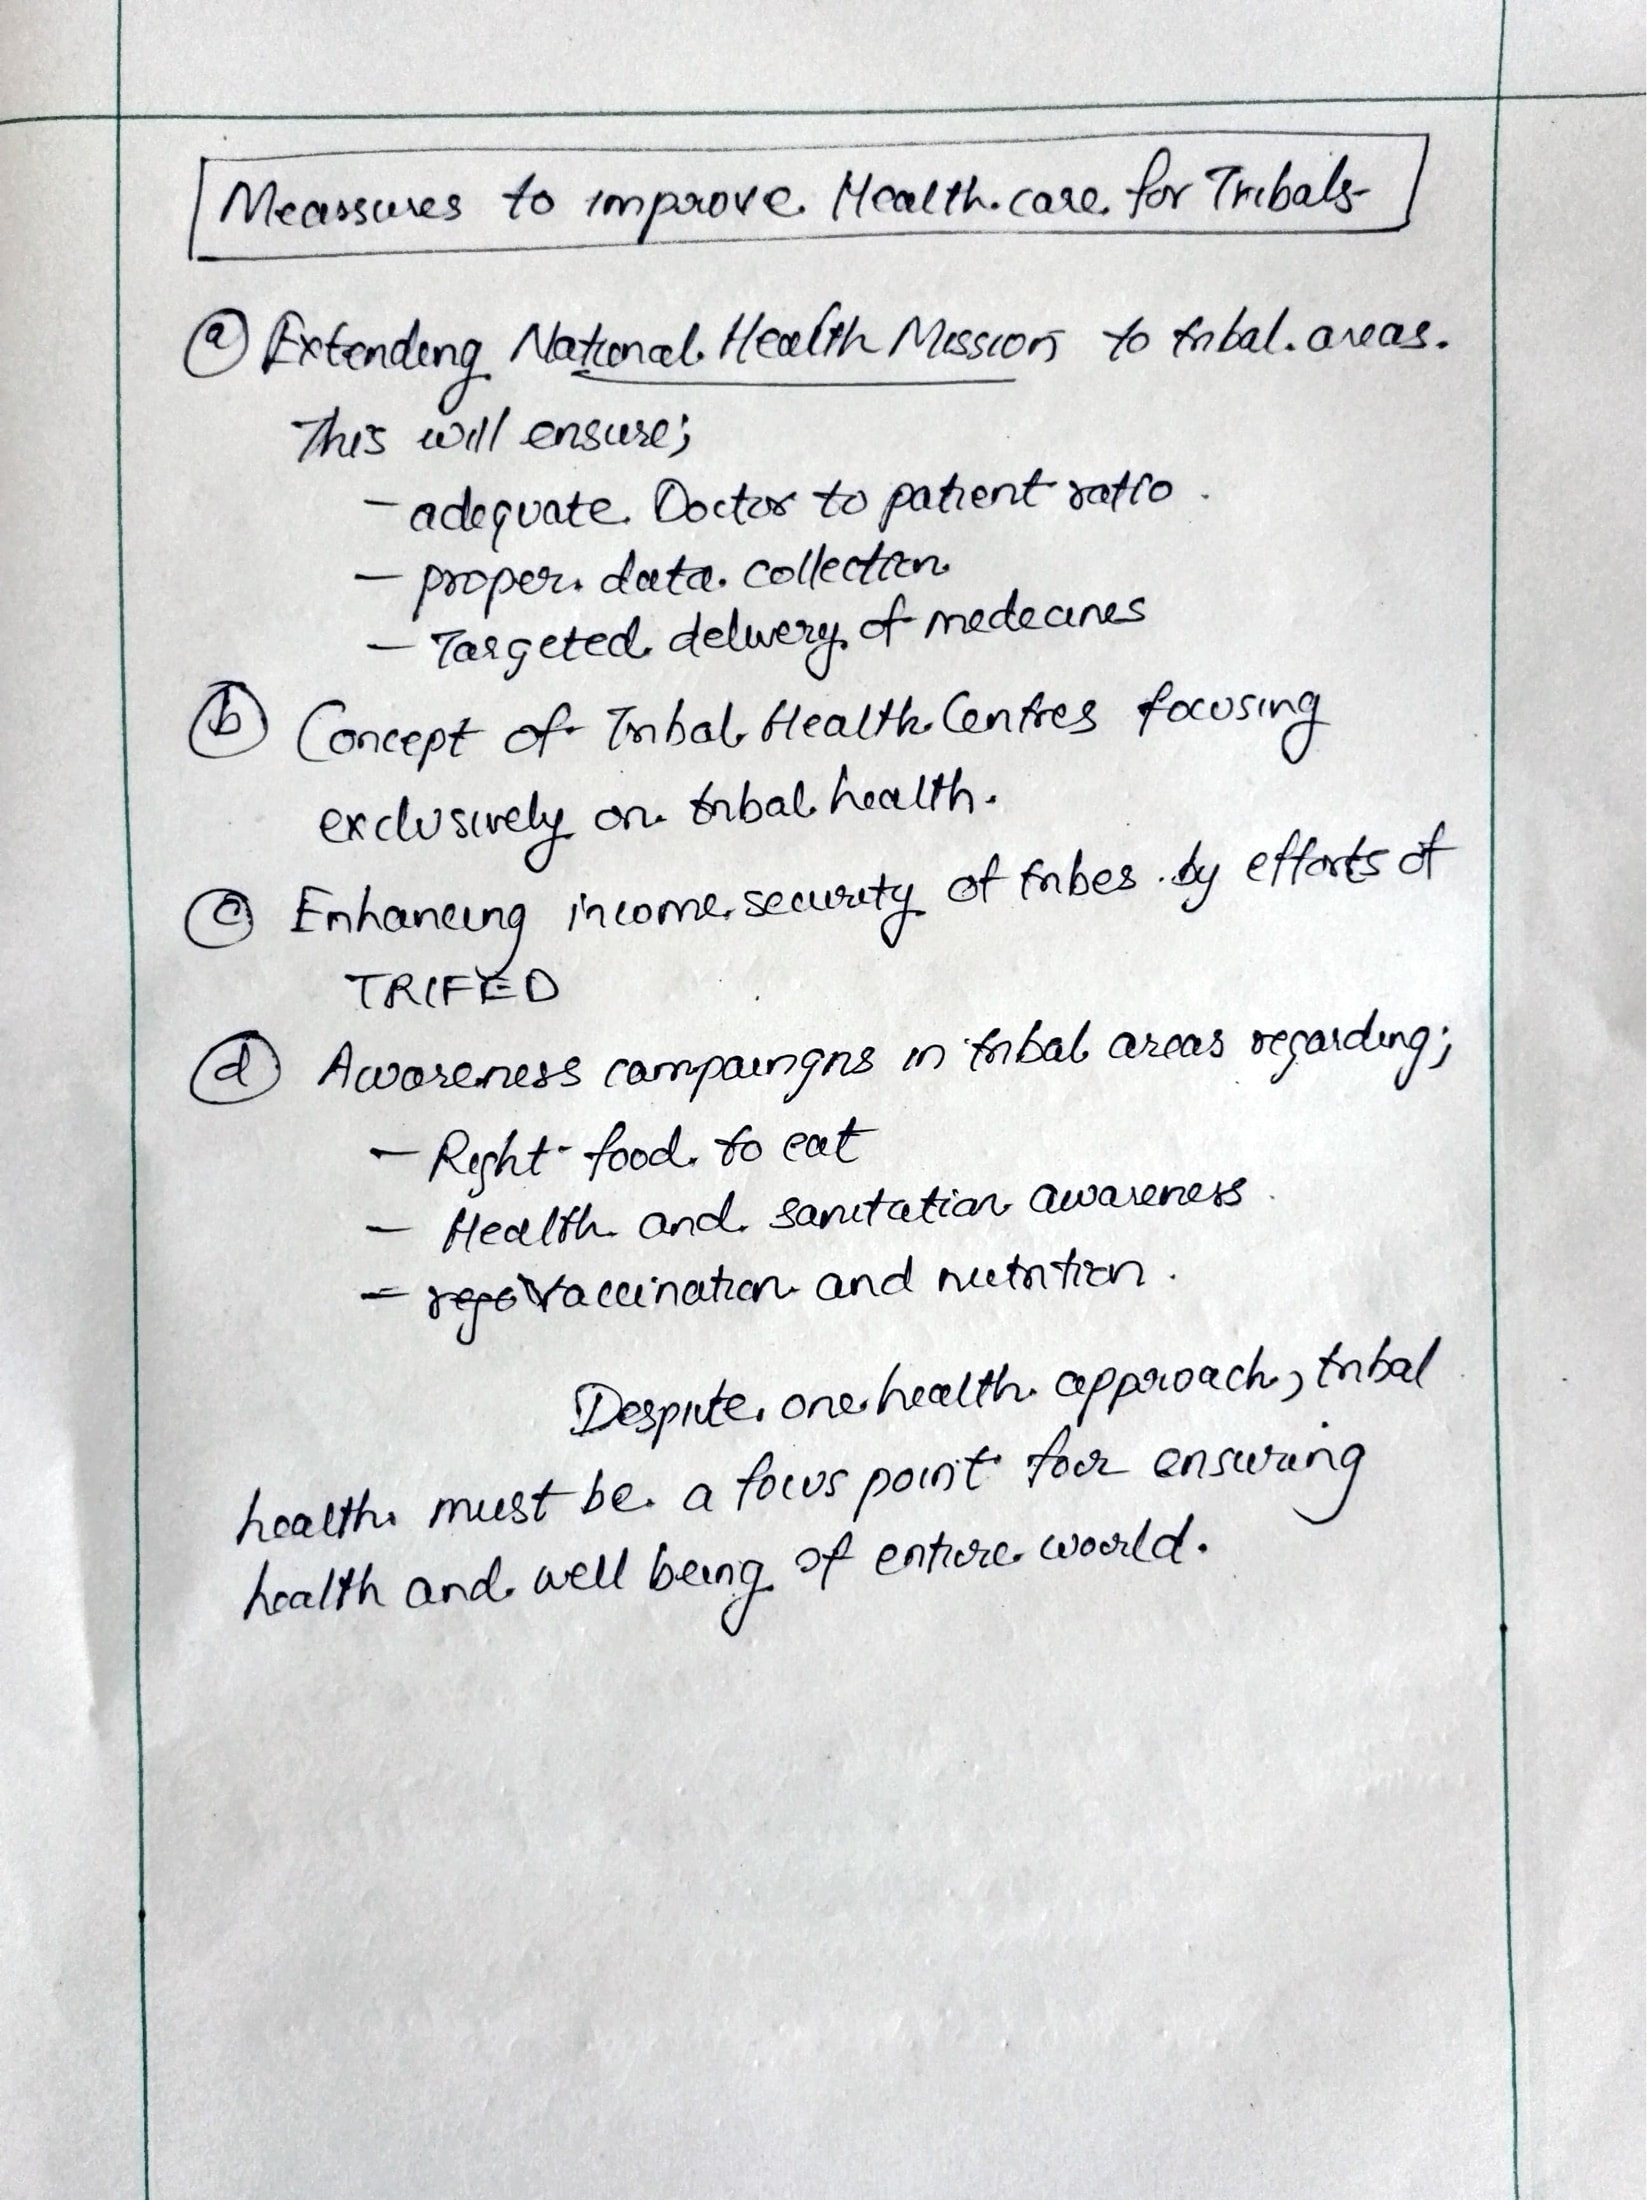 Meassures to improve Healthcare for Tribals
(a) Extending National Health Mission to tribal areas.
This will ensure;
- adequate Doctor to patient ratio.
- proper data collection
- Targeted delivery of medecines
(b) Concept of Tribal Health Centres focusing
exclusively on tribal health.
(c) Enhancing income security of tribes by efforts of
TRIFED
(d) Awareness campaingns in tribal areas regarding;
- Right food to eat
- Health and sanitation awareness
- vaccination and nutrition.
Despite one health approach, tribal
health must be a focus point for ensuring
health and well being of entire world.